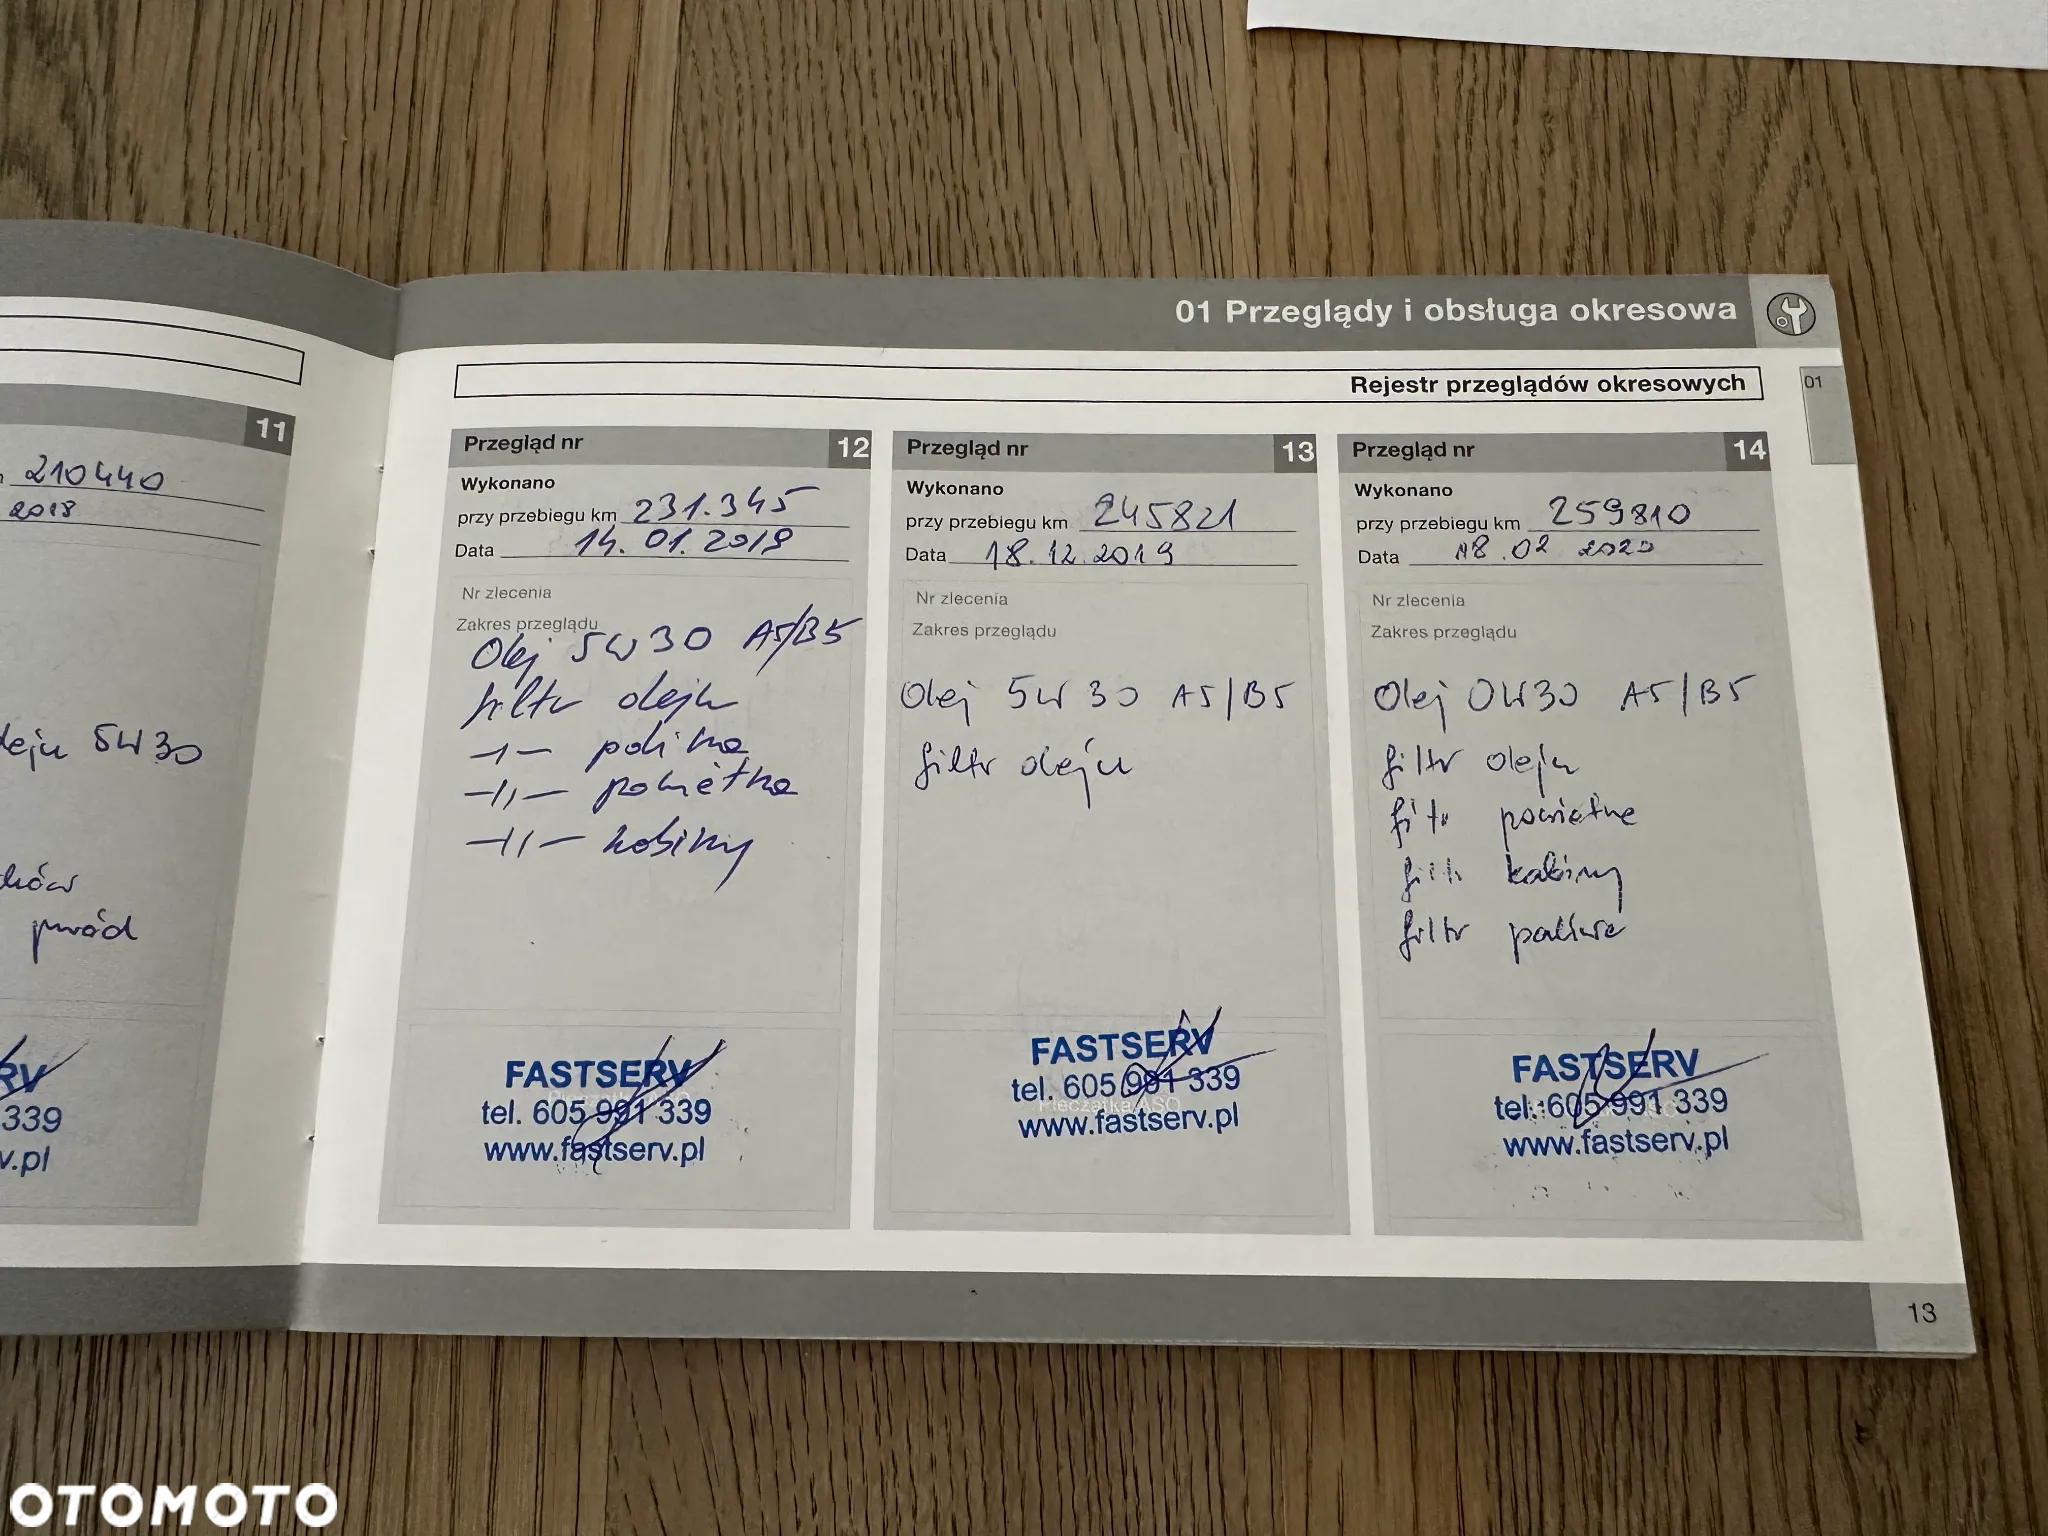 01 Przeglądy i obsługa okresowa
Rejestr przeglądów okresowych
01
11
210440
2018
5W30
ków
RV
339
v.pl
Przegląd nr 12
Wykonano
przy przebiegu km 231.345
Data 14.01.2019
Nr zlecenia
Zakres przeglądu
Olej 5W30 A5/B5
filtr oleju
-"- paliwa
-"- powietrza
-"- kabiny
FASTSERV
Pieczątka ASO
tel. 605 991 339
www.fastserv.pl
Przegląd nr 13
Wykonano
przy przebiegu km 245821
Data 18.12.2019
Nr zlecenia
Zakres przeglądu
Olej 5W30 A5/B5
filtr oleju
FASTSERV
tel. 605 991 339
Pieczątka ASO
www.fastserv.pl
Przegląd nr 14
Wykonano
przy przebiegu km 259810
Data 18.02 2020
Nr zlecenia
Zakres przeglądu
Olej 0W30 A5/B5
filtr oleju
filtr powietrze
filtr kabiny
filtr paliwa
FASTSERV
tel. 605 991 339
www.fastserv.pl
13
OTOMOTO